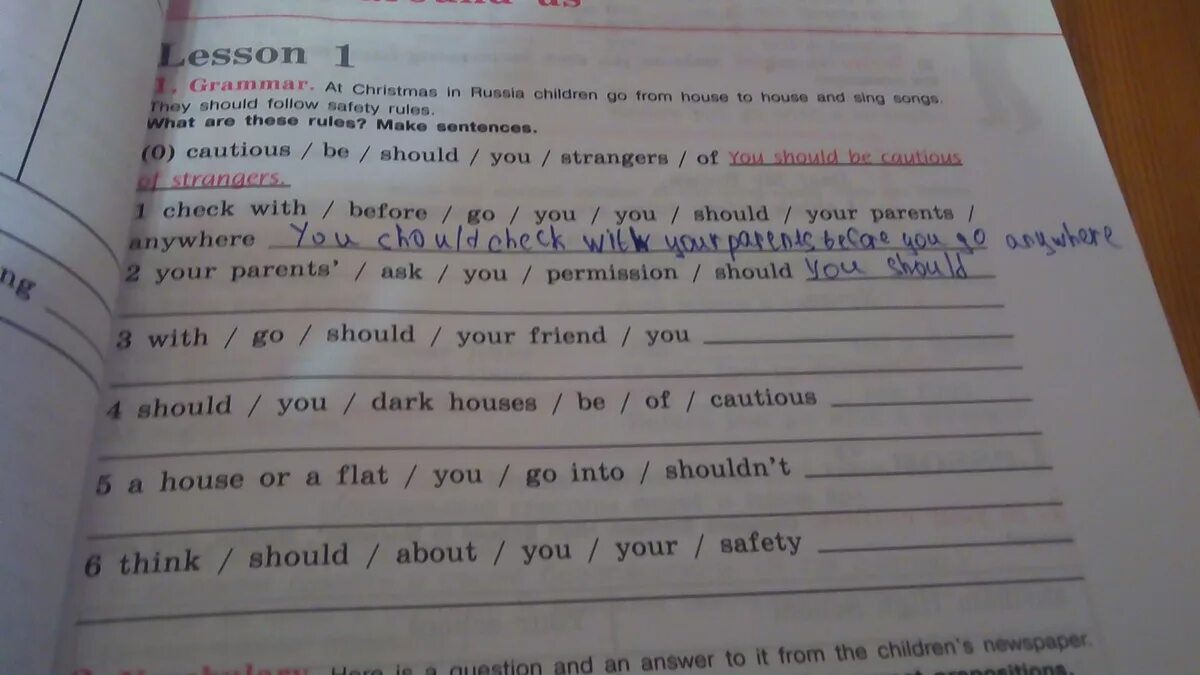 around us
Lesson 1
1. Grammar. At Christmas in Russia children go from house to house and sing songs.
They should follow safety rules.
What are these rules? Make sentences.
(0) cautious / be / should / you / strangers / of You should be cautious
of strangers.
1 check with / before / go / you / you / should / your parents /
anywhere You should check with your parents before you go anywhere
2 your parents' / ask / you / permission / should you should
ng
3 with / go / should / your friend / you
4 should / you / dark houses / be / of / cautious
5 a house or a flat / you / go into / shouldn't
6 think / should / about / you / your / safety
2. Vocabulary. Here is a question and an answer to it from the children's newspaper.
prepositions.